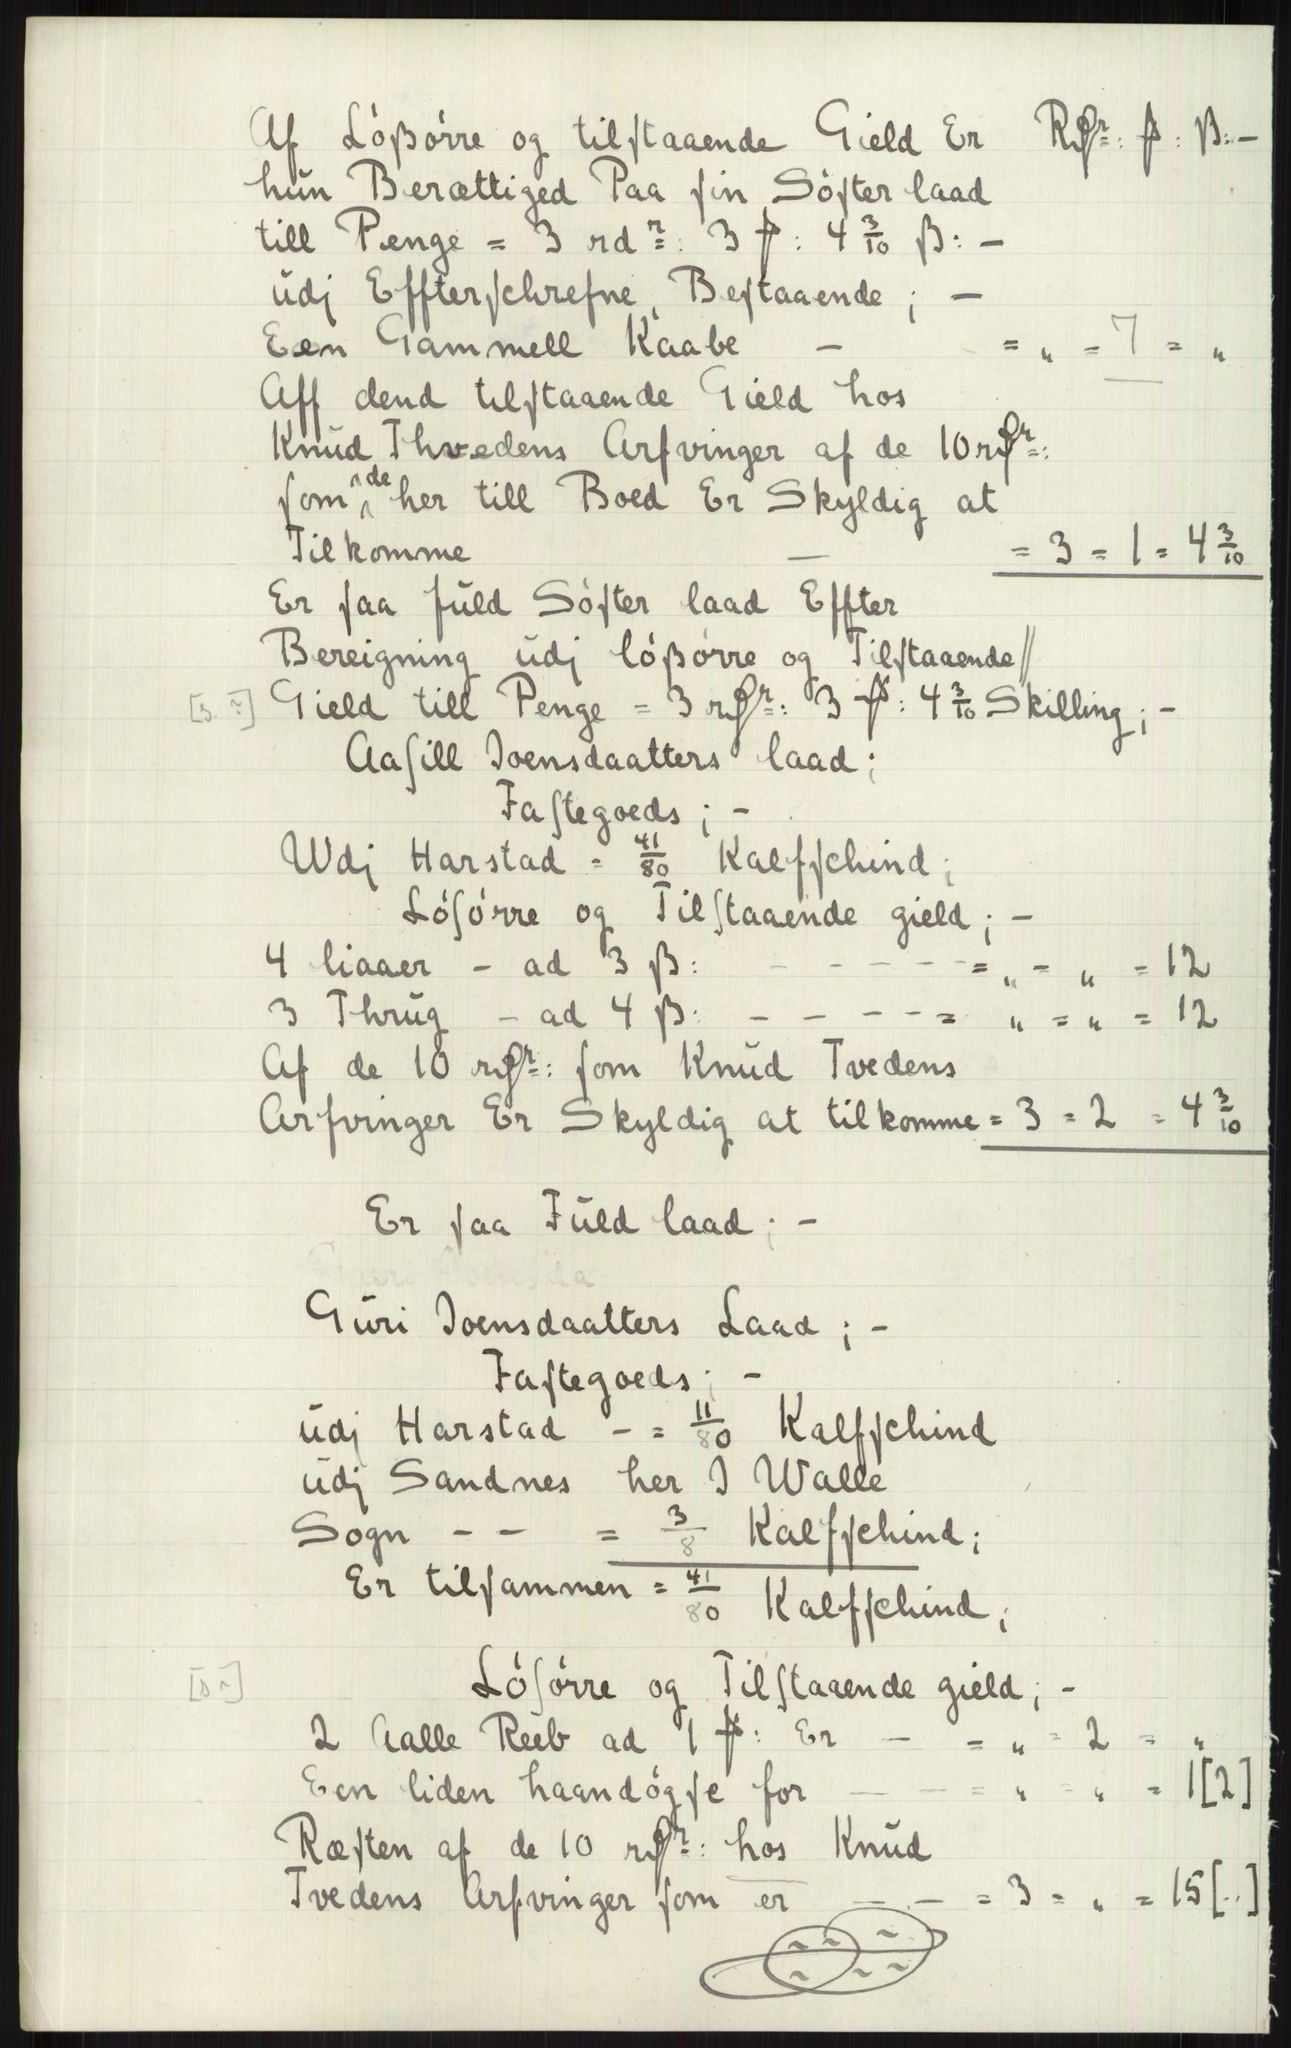 Af Lóßórre og tilstaaende Gield Er Rdr: ₰: ß: -
hun Berættiged Paa sin Sóster laad
till Penge = 3 rdr: 3 ₰: 4 3/10 ß: -
udj Effterschrefne, Bestaaende; -
Een Gammell Kaabe - = „ = 7 = „
Aff dend tilstaaende Gield hos
Knud Thvedens Arfvinger af de 10 rdr:
som de her till Boed Er Skyldig at
Tilkomme - = 3 = 1 = 4 3/10
Er saa fuld Sóster laad Effter
Bereigning udj lóßórre og Tilstaaende//
Gield till Penge = 3 rdr: 3 ₰: 4 3/10 Skilling; -
Aasill Joensdaatters laad;
Fastegoeds; -
Wdj Harstad = 41/80 Kalfschind;
Lósórre og Tilstaaende gield; -
4 liaaer - ad 3 ß: - - - - - = „ = „ = 12
3 Thrug - ad 4 ß: - - - - = „ = „ = 12
Af de 10 rdr: som Knud Tvedens
Arfvinger Er Skyldig at tilkomme = 3 = 2 = 4 3/10
Er saa Fuld laad; -
Guri Joensdaatters Laad; -
Fastegoeds; -
udj Harstad - = 11/80 Kalfschind
udj Sandnes her I Walle
Sogn - - = 3/8 Kalfschind;
Er tilsammen = 41/80 Kalfschind;
Lósórre og Tilstaaende gield; -
2 Aalle Reeb ad 1 ₰: Er - = „ = 2 = „
Een liden haandógse for - - = „ = „ = 1[2]
Ræsten af de 10 rdr: hos Knud
Tvedens Arfvinger som er - - = 3 = „ = 15[..]